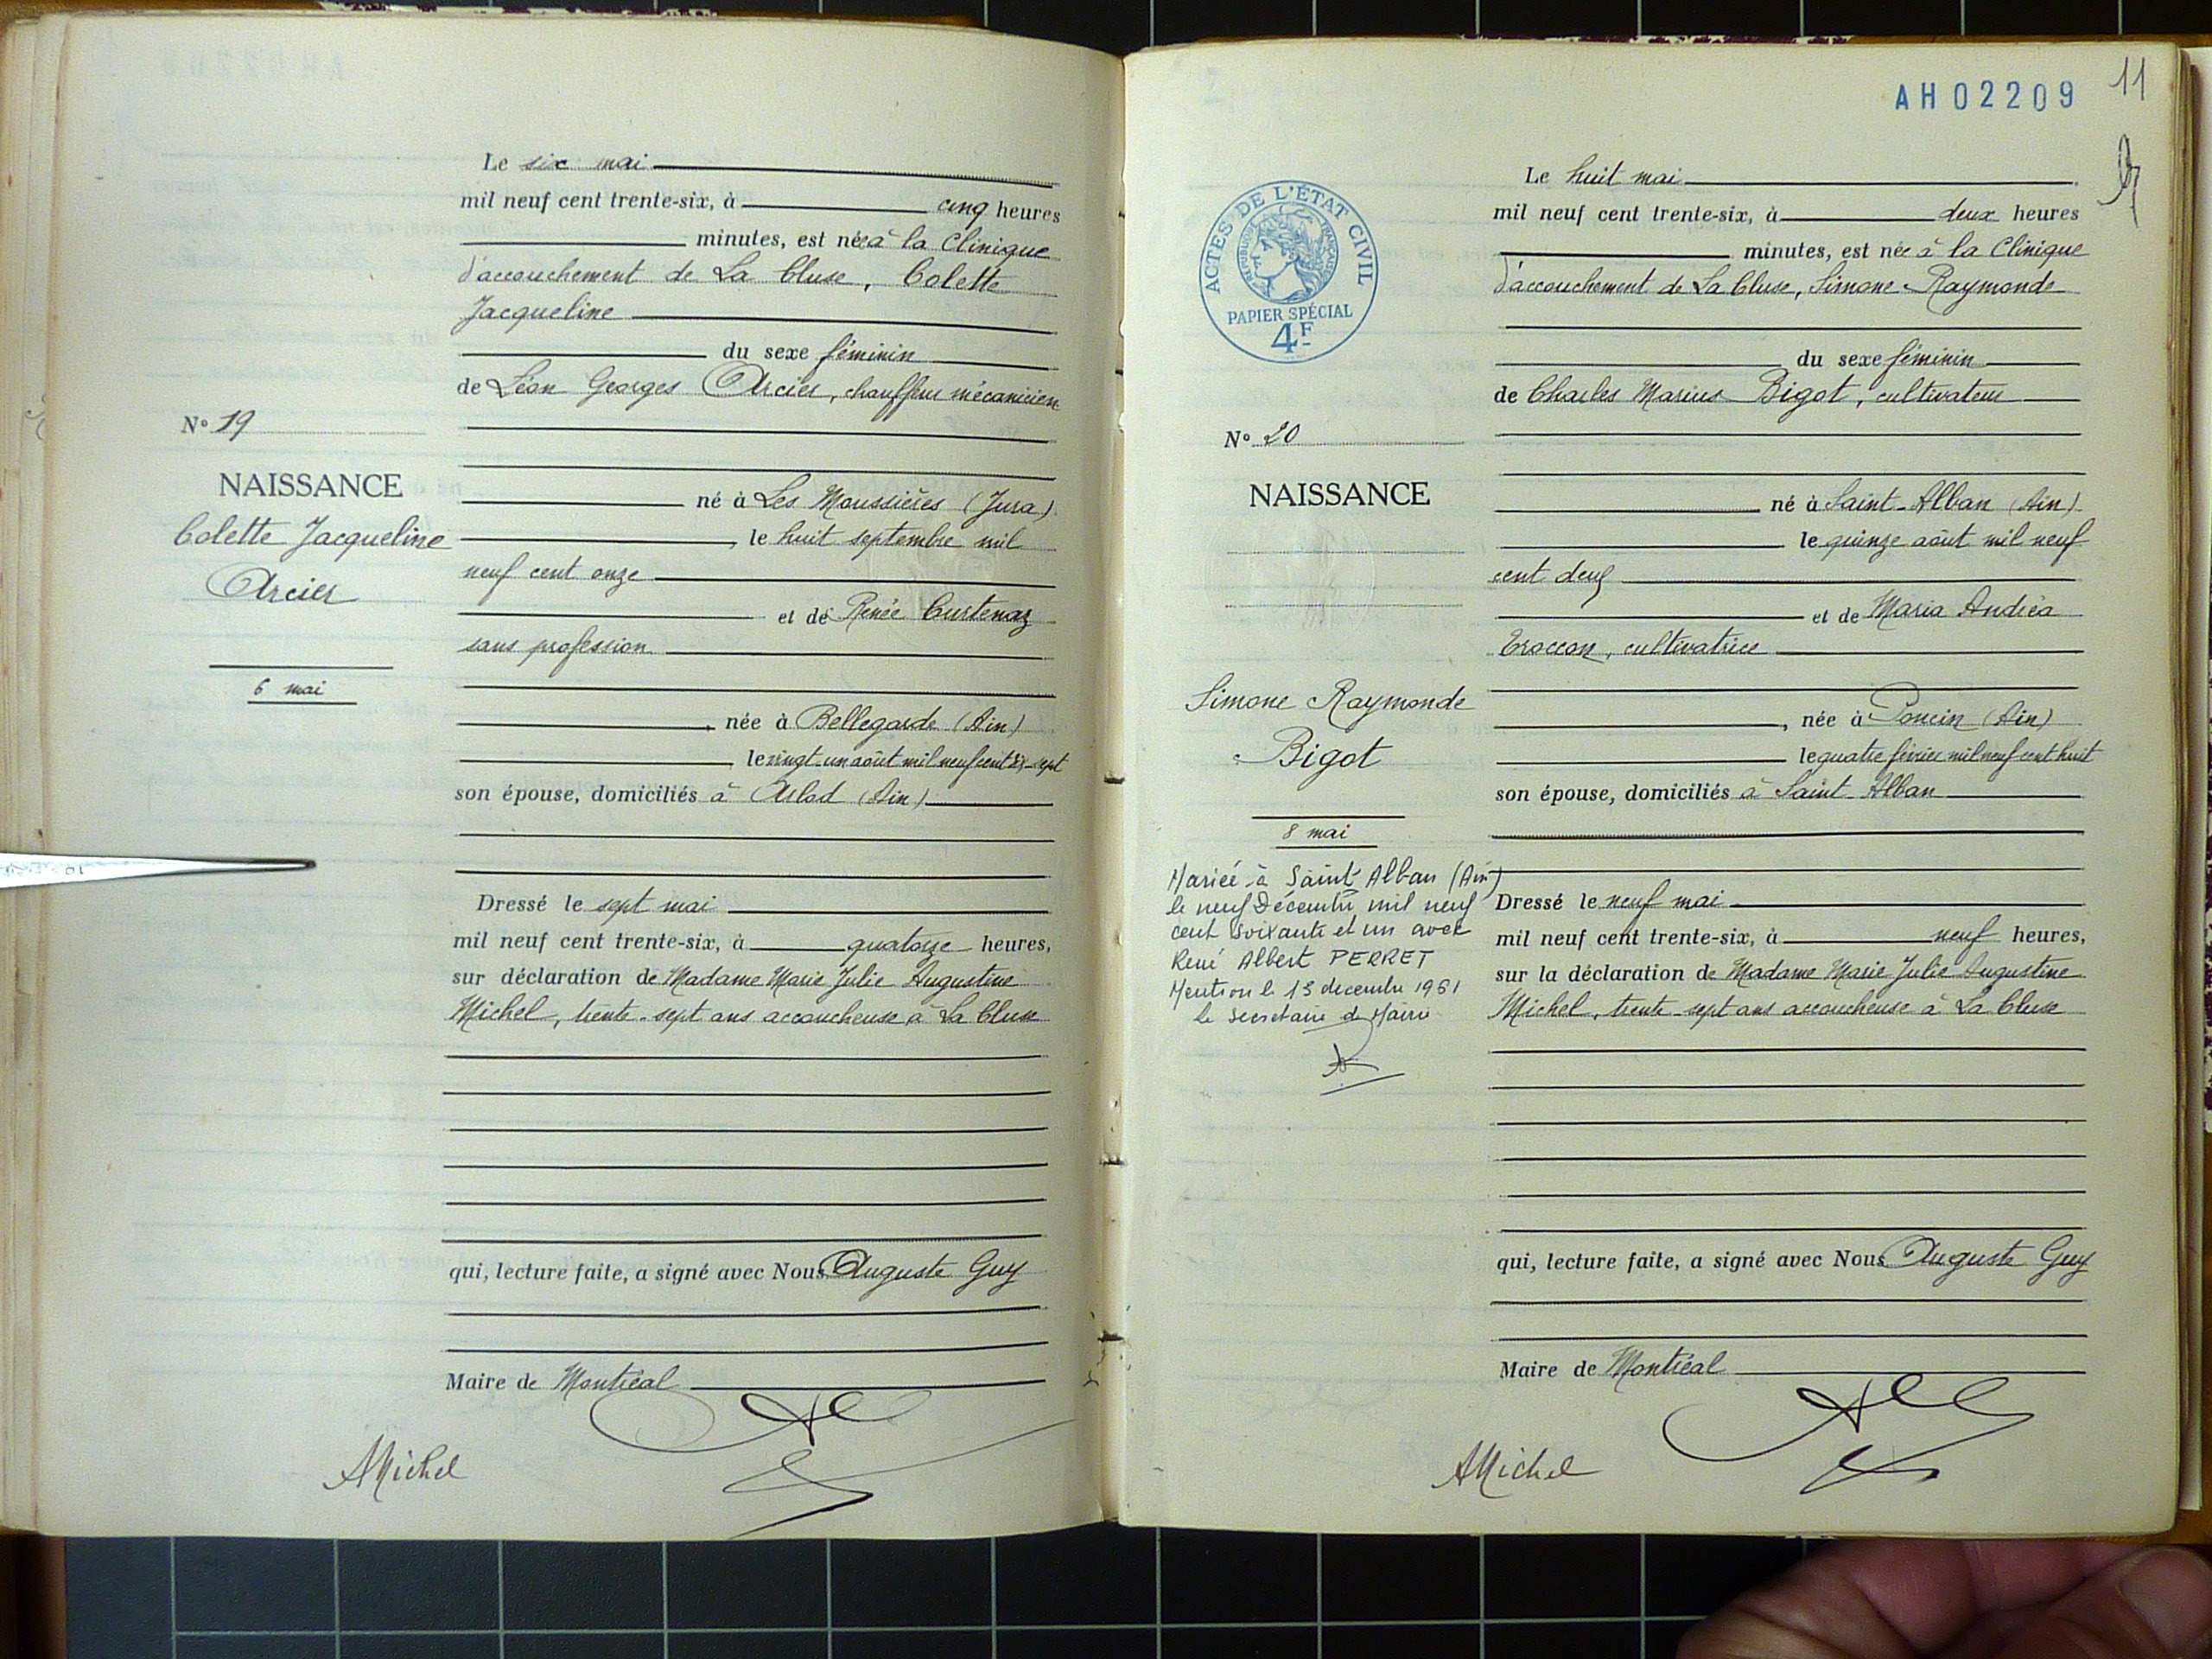 Le six mai
mil neuf cent trente-six, à cinq heures
minutes, est née à la Clinique
d'accouchement de La Cluse, Colette
Jacqueline
du sexe féminin
de Léon Georges Arcier, chauffeur mécanicien
N° 19
NAISSANCE
Colette Jacqueline
Arcier
6 mai
né à Les Moussières (Jura)
, le huit septembre mil
neuf cent onze
et de Renée Curtenaz
sans profession
, née à Bellegarde (Ain)
le vingt-un août mil neuf cent dix-sept
son épouse, domiciliés à Arlod (Ain)
Dressé le sept mai
mil neuf cent trente-six, à quatorze heures,
sur déclaration de Madame Marie Julie Augustine
Michel, trente-sept ans accoucheuse à La Cluse
qui, lecture faite, a signé avec Nous, Auguste Guy
Maire de Montréal
AMichel
AH02209
11
ACTES DE L'ÉTAT CIVIL
RÉPUBLIQUE FRANÇAISE
PAPIER SPÉCIAL
4F
Le huit mai
mil neuf cent trente-six, à deux heures
minutes, est née à la Clinique
d'accouchement de La Cluse, Simone Raymonde
du sexe féminin
de Charles Marius Bigot, cultivateur
N° 20
NAISSANCE
Simone Raymonde
Bigot
8 mai
Mariée à Saint Alban (Ain)
le neuf Décembre mil neuf
cent soixante et un avec
René Albert PERRET
Mention le 13 decembre 1961
le Secretaire de Mairie
né à Saint-Alban (Ain)
le quinze août mil neuf
cent deux
et de Maria Andréa
Troccon, cultivatrice
, née à Poncin (Ain)
le quatre février mil neuf cent huit
son épouse, domiciliés à Saint-Alban
Dressé le neuf mai
mil neuf cent trente-six, à neuf heures,
sur la déclaration de Madame Marie Julie Augustine
Michel, trente-sept ans accoucheuse à La Cluse
qui, lecture faite, a signé avec Nous Auguste Guy
Maire de Montréal
AMichel